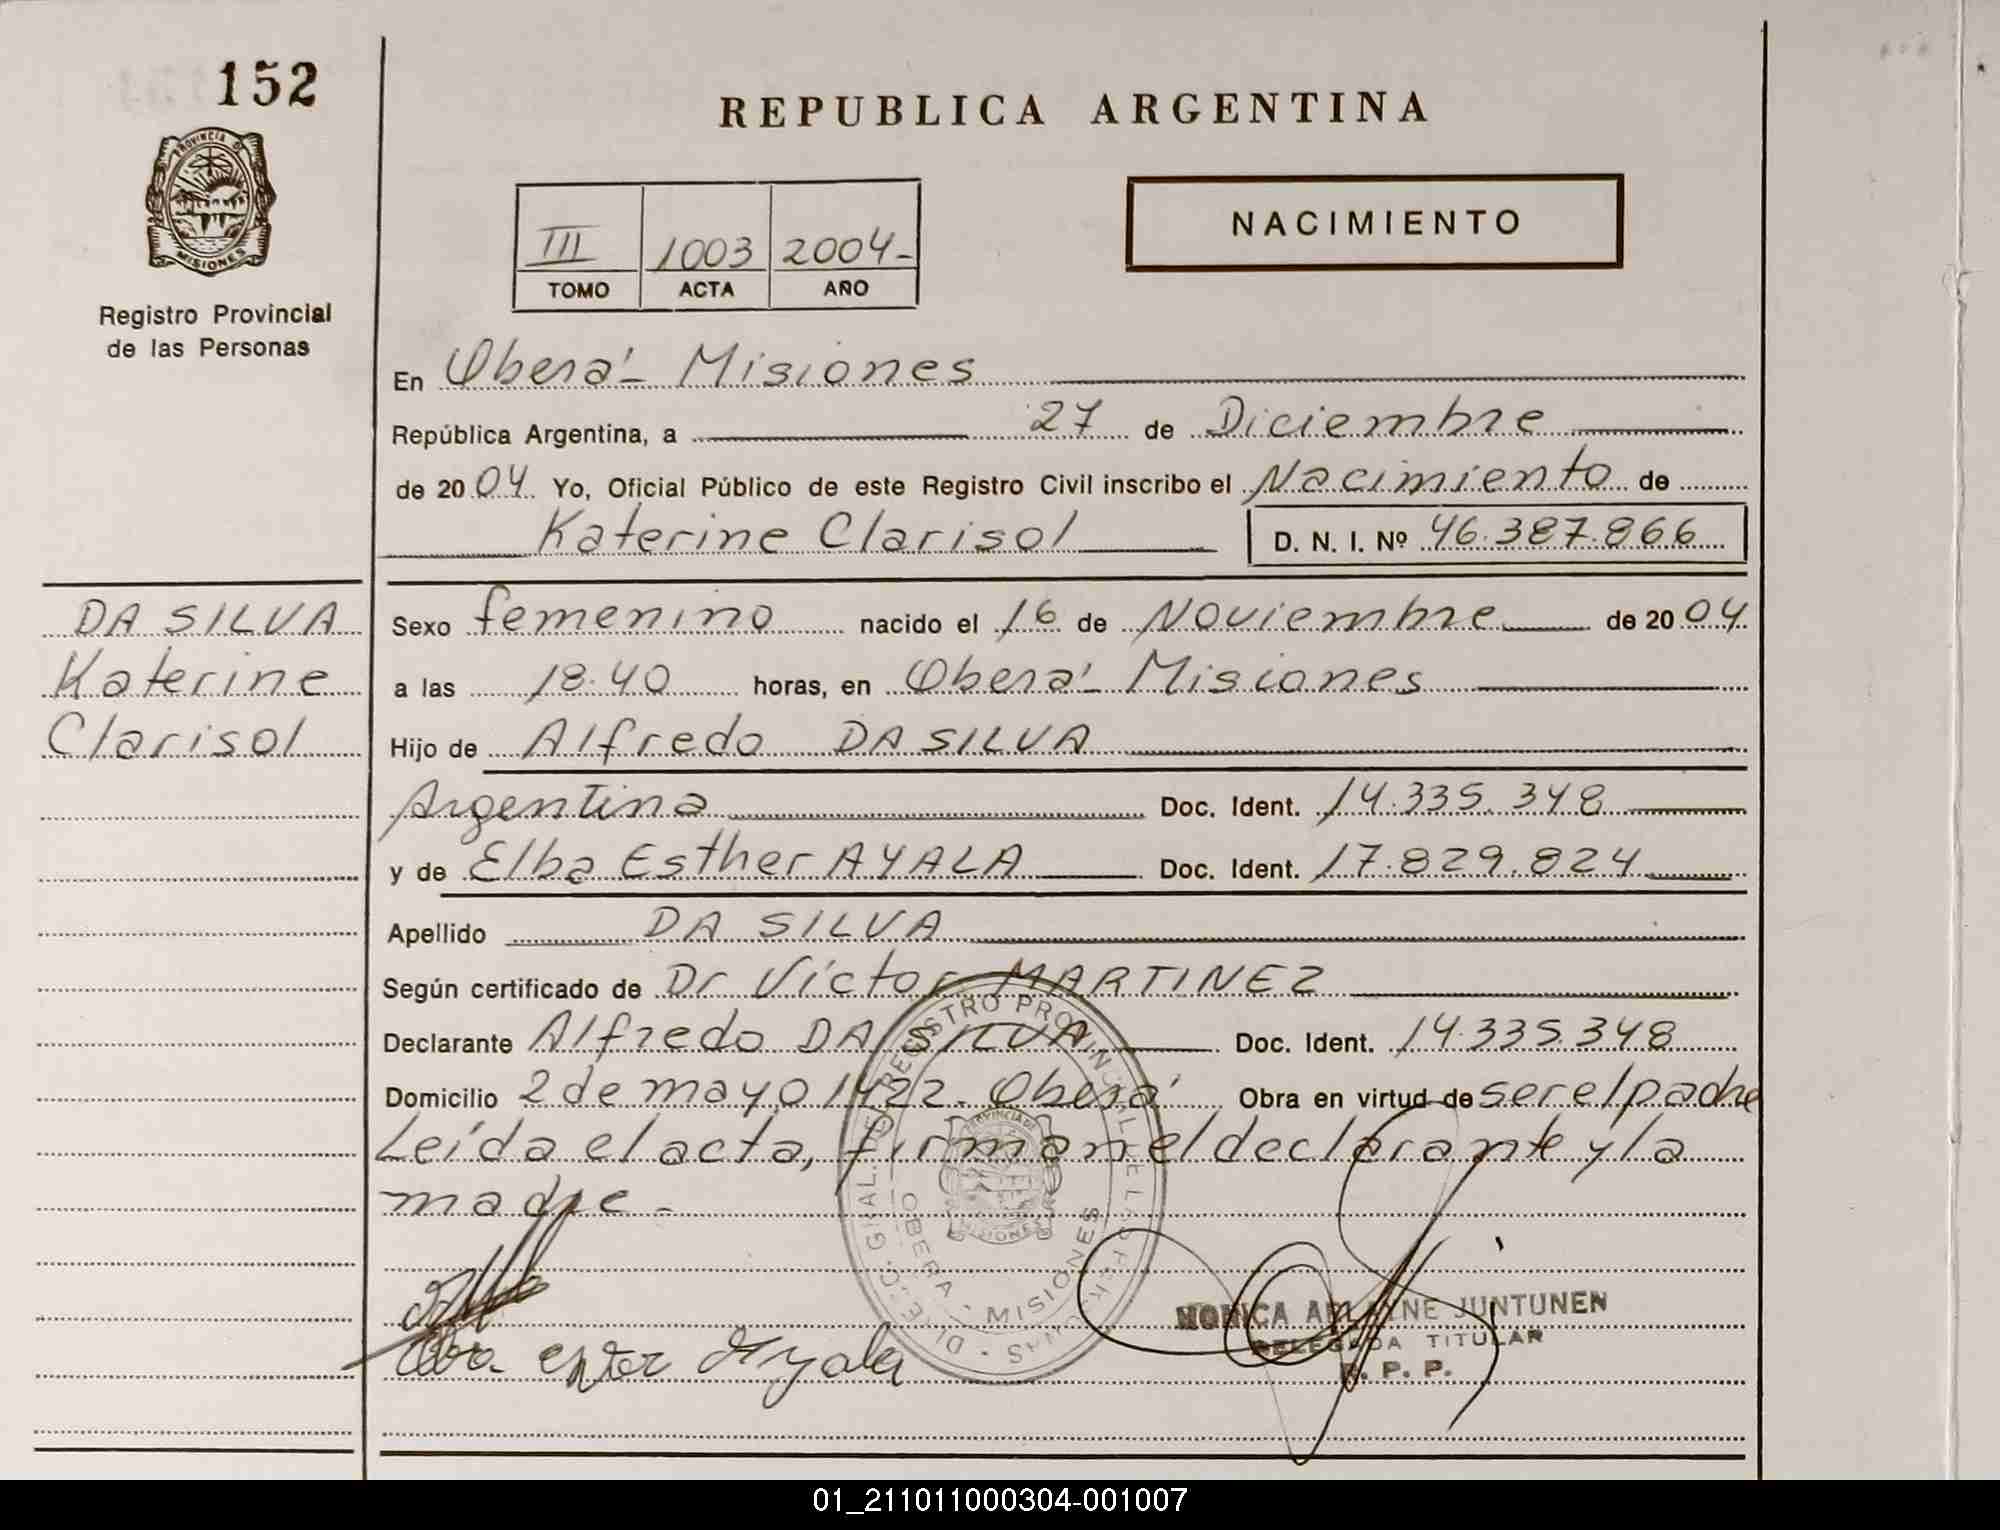 152
PROVINCIA DE
MISIONES
Registro Provincial
de las Personas
REPUBLICA ARGENTINA
III 1003 2004-
TOMO ACTA AÑO
NACIMIENTO
En Oberá - Misiones
República Argentina, a 27 de Diciembre
de 2004. Yo, Oficial Público de este Registro Civil inscribo el Nacimiento de
Katerine Clarisol D. N. I. Nº 46.387.866
DA SILVA
Katerine
Clarisol
Sexo femenino nacido el 16 de Noviembre de 2004
a las 18.40 horas, en Oberá - Misiones
Hijo de Alfredo DA SILVA
Argentina Doc. Ident. 14.335.348
y de Elba Esther AYALA Doc. Ident. 17.829.824
Apellido DA SILVA
Según certificado de Dr Víctor MARTINEZ
Declarante Alfredo DA SILVA Doc. Ident. 14.335.348
Domicilio 2 de mayo 1422. Oberá Obra en virtud de ser el padre
Leída el acta, firman el declarante y la
madre -
DIREC. GRAL. DEL REGISTRO PROVINCIAL DE LAS PERSONAS
OBERA - MISIONES
MONICA ARLAINE JUNTUNEN
DELEGADA TITULAR
R. P. P.
Ayala
01_211011000304-001007